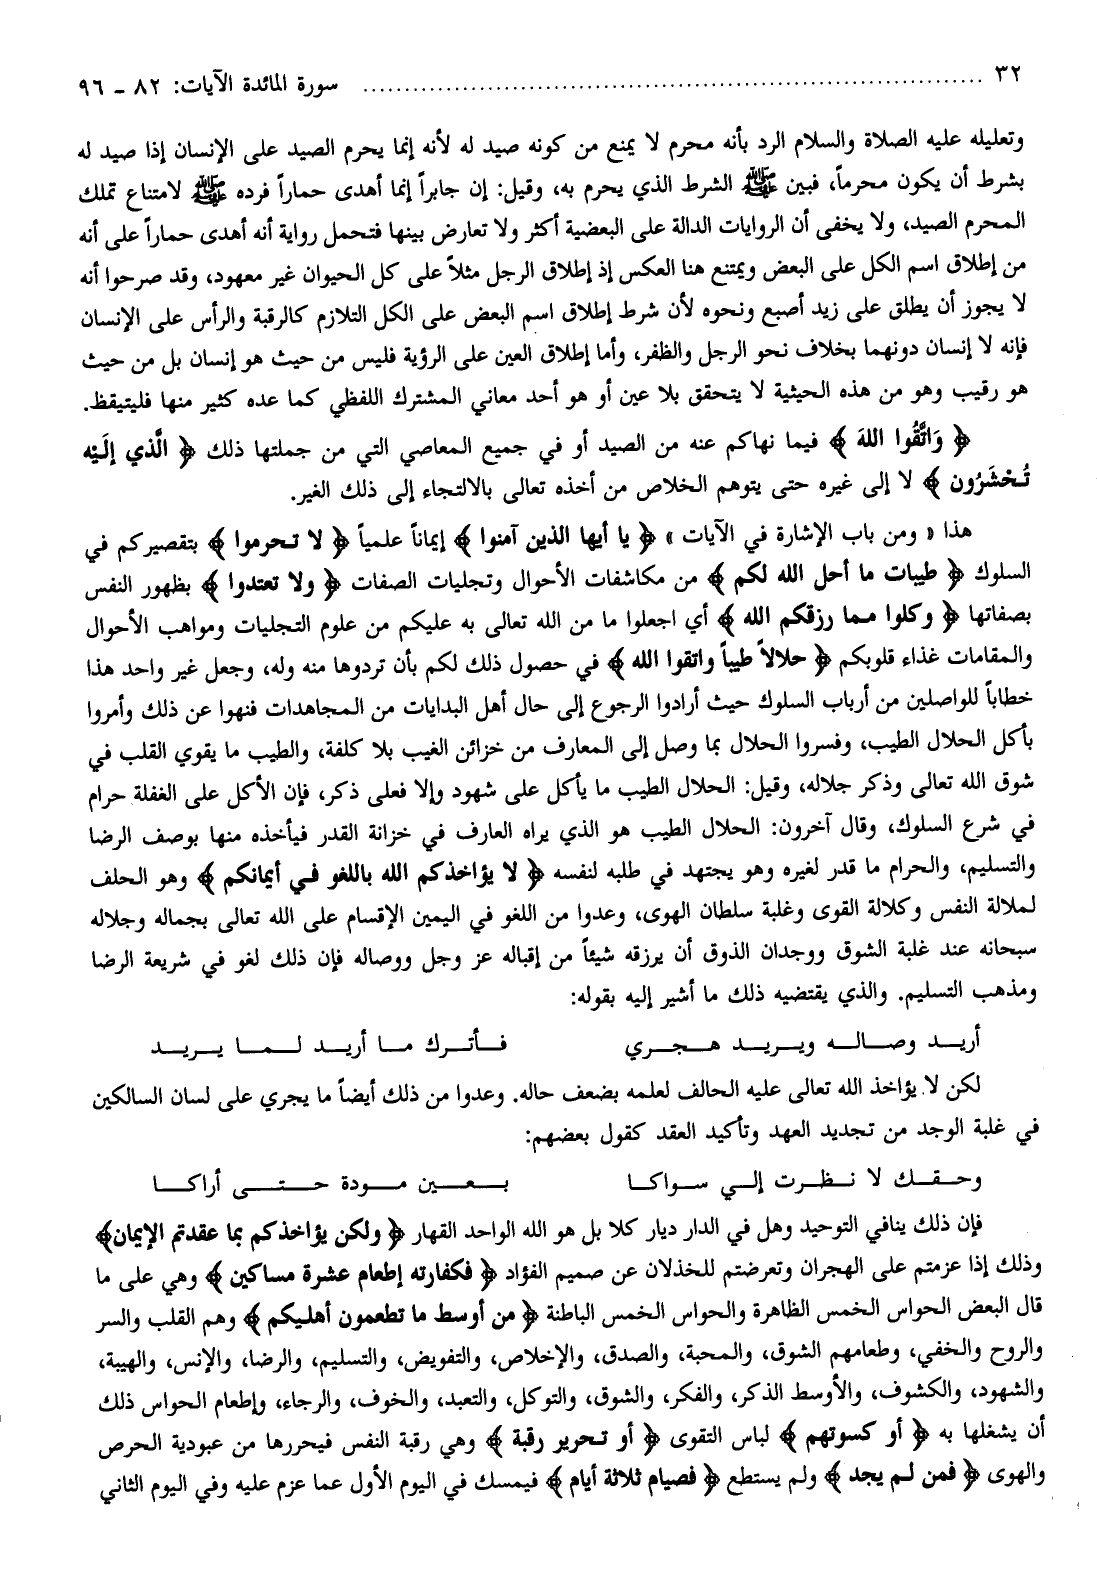 ٣٢ ........................................................ سورة المائدة الآيات: ٨٢ - ٩٦
وتعليله عليه الصلاة والسلام الرد بأنه محرم لا يمنع من كونه صيد له لأنه إنما يحرم الصيد على الإنسان إذا صيد له
بشرط أن يكون محرماً، فبين ﷺ الشرط الذي يحرم به، وقيل: إن جابراً إنما أهدى حماراً فرده ﷺ لامتناع تملك
المحرم الصيد، ولا يخفى أن الروايات الدالة على البعضية أكثر ولا تعارض بينها فتحمل رواية أنه أهدى حماراً على أنه
من إطلاق اسم الكل على البعض ويمتنع هنا العكس إذ إطلاق الرجل مثلاً على كل الحيوان غير معهود، وقد صرحوا أنه
لا يجوز أن يطلق على زيد أصبع ونحوه لأن شرط إطلاق اسم البعض على الكل التلازم كالرقبة والرأس على الإنسان
فإنه لا إنسان دونهما بخلاف نحو الرجل والظفر، وأما إطلاق العين على الرؤية فليس من حيث هو إنسان بل من حيث
هو رقيب وهو من هذه الحيثية لا يتحقق بلا عين أو هو أحد معاني المشترك اللفظي كما عده كثير منها فليتيقظ.
﴿ وَاتَّقُوا اللهَ ﴾ فيما نهاكم عنه من الصيد أو في جميع المعاصي التي من جملتها ذلك ﴿ الَّذي إلَيْه
تُحْشَرُون ﴾ لا إلى غيره حتى يتوهم الخلاص من أخذه تعالى بالالتجاء إلى ذلك الغير.
هذا « ومن باب الإشارة في الآيات » ﴿ يا أيها الذين آمنوا ﴾ إيماناً علمياً ﴿ لا تحرموا ﴾ بتقصيركم في
السلوك ﴿ طيبات ما أحل الله لكم ﴾ من مكاشفات الأحوال وتجليات الصفات ﴿ ولا تعتدوا ﴾ بظهور النفس
بصفاتها ﴿ وكلوا مما رزقكم الله ﴾ أي اجعلوا ما من الله تعالى به عليكم من علوم التجليات ومواهب الأحوال
والمقامات غذاء قلوبكم ﴿ حلالاً طيباً واتقوا الله ﴾ في حصول ذلك لكم بأن تردوها منه وله، وجعل غير واحد هذا
خطاباً للواصلين من أرباب السلوك حيث أرادوا الرجوع إلى حال أهل البدايات من المجاهدات فنهوا عن ذلك وأمروا
بأكل الحلال الطيب، وفسروا الحلال بما وصل إلى المعارف من خزائن الغيب بلا كلفة، والطيب ما يقوي القلب في
شوق الله تعالى وذكر جلاله، وقيل: الحلال الطيب ما يأكل على شهود وإلا فعلى ذكر، فإن الأكل على الغفلة حرام
في شرع السلوك، وقال آخرون: الحلال الطيب هو الذي يراه العارف في خزانة القدر فيأخذه منها بوصف الرضا
والتسليم، والحرام ما قدر لغيره وهو يجتهد في طلبه لنفسه ﴿ لا يؤاخذكم الله باللغو في أيمانكم ﴾ وهو الحلف
لملالة النفس وكلالة القوى وغلبة سلطان الهوى، وعدوا من اللغو في اليمين الإقسام على الله تعالى بجماله وجلاله
سبحانه عند غلبة الشوق ووجدان الذوق أن يرزقه شيئاً من إقباله عز وجل ووصاله فإن ذلك لغو في شريعة الرضا
ومذهب التسليم. والذي يقتضيه ذلك ما أشير إليه بقوله:
أريد وصاله ويريد هجري فأترك ما أريد لما يريد
لكن لا يؤاخذ الله تعالى عليه الحالف لعلمه بضعف حاله. وعدوا من ذلك أيضاً ما يجري على لسان السالكين
في غلبة الوجد من تجديد العهد وتأكيد العقد كقول بعضهم:
وحقك لا نظرت إلي سواكا بعين مودة حتى أراكا
فإن ذلك ينافي التوحيد وهل في الدار ديار كلا بل هو الله الواحد القهار ﴿ ولكن يؤاخذكم بما عقدتم الإيمان﴾
وذلك إذا عزمتم على الهجران وتعرضتم للخذلان عن صميم الفؤاد ﴿ فكفارته إطعام عشرة مساكين ﴾ وهي على ما
قال البعض الحواس الخمس الظاهرة والحواس الخمس الباطنة ﴿ من أوسط ما تطعمون أهليكم ﴾ وهم القلب والسر
والروح والخفي، وطعامهم الشوق، والمحبة، والصدق، والإخلاص، والتفويض، والتسليم، والرضا، والإنس، والهيبة،
والشهود، والكشوف، والأوسط الذكر، والفكر، والشوق، والتوكل، والتعبد، والخوف، والرجاء، وإطعام الحواس ذلك
أن يشغلها به ﴿ أو كسوتهم ﴾ لباس التقوى ﴿ أو تحرير رقبة ﴾ وهي رقبة النفس فيحررها من عبودية الحرص
والهوى ﴿ فمن لم يجد ﴾ ولم يستطع ﴿ فصيام ثلاثة أيام ﴾ فيمسك في اليوم الأول عما عزم عليه وفي اليوم الثاني